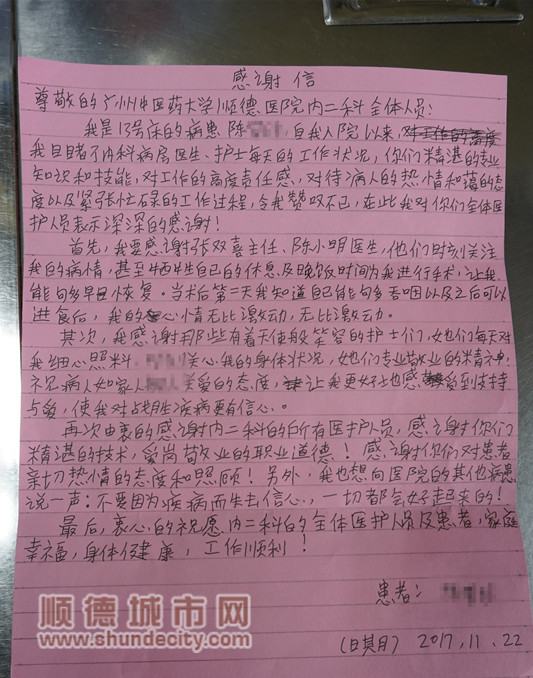 感谢信
尊敬的广州中医药大学顺德医院内二科全体人员:
我是13号床的病患陈 自我入院以来,对工作的高度
我目睹了内科病房医生、护士每天的工作状况,你们精湛的专业
知识和技能,对工作的高度责任感,对待病人的热情和蔼的态
度以及紧张忙碌的工作过程,令我赞叹不已,在此我对你们全体医
护人员表示深深的感谢!
首先,我要感谢张双喜主任、陈小明医生,他们时刻关注
我的病情,甚至牺牲自己的休息及晚饭时间为我进行手术,让我
能够早日恢复。当术后第二天我知道自己能够吞咽以及之后可以
进食后,我的心情无比激动,无比激动。
其次,我感谢那些有着天使般笑容的护士们,她们每天对
我细心照料, 关心我的身体状况,她们专业敬业的精神,
视病人如家人 关爱的态度,让我更好地感受到支持
与爱,使我对战胜疾病更有信心。
再次由衷的感谢内二科的所有医护人员,感谢你们
精湛的技术,爱岗敬业的职业道德!感谢你们对患者
亲切热情的态度和照顾!另外,我也想向医院的其他病患
说一声:不要因为疾病而失去信心,一切都会好起来的!
最后,衷心的祝愿内二科的全体医护人员及患者,家庭
幸福,身体健康,工作顺利!
患者:
(日期) 2017.11.22
顺德城市网
www.shundecity.com